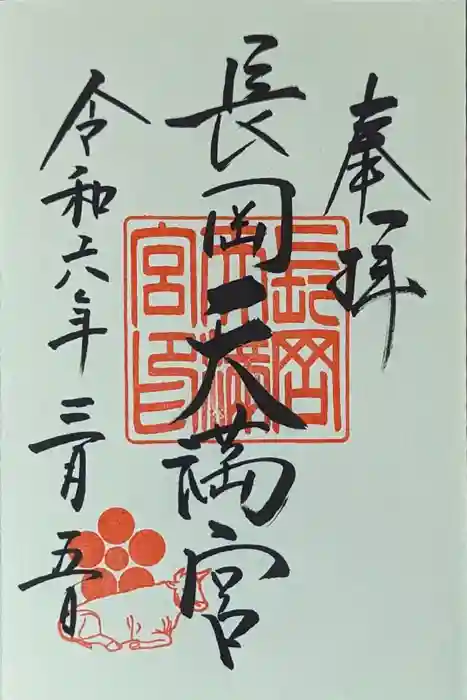 奉拝
長岡天満宮
令和六年三月五日
長岡
天満
宮印